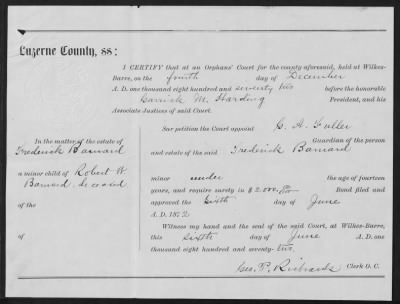 Luzerne County, ss:
I CERTIFY that at an Orphans' Court for the county aforesaid, held at Wilkes-
Barre, on the fourth day of December
A. D. one thousand eight hundred and seventy two before the honorable
Garrick M. Harding President, and his
Associate Justices of said Court.
Sur petition the Court appoint C. A. Fuller
Guardian of the person
and estate of the said Frederick Barnard
minor under the age of fourteen
years, and require surety in $2,000. Bond filed and
approved the Sixth day of June
A. D. 1872
Witness my hand and the seal of the said Court, at Wilkes-Barre,
this Sixth day of June A. D. one
thousand eight hundred and seventy-two.
Geo. P. Richards Clerk O. C.
In the matter of the estate of
Frederick Barnard
a minor child of Robert W
Barnard, deceased
of the
of